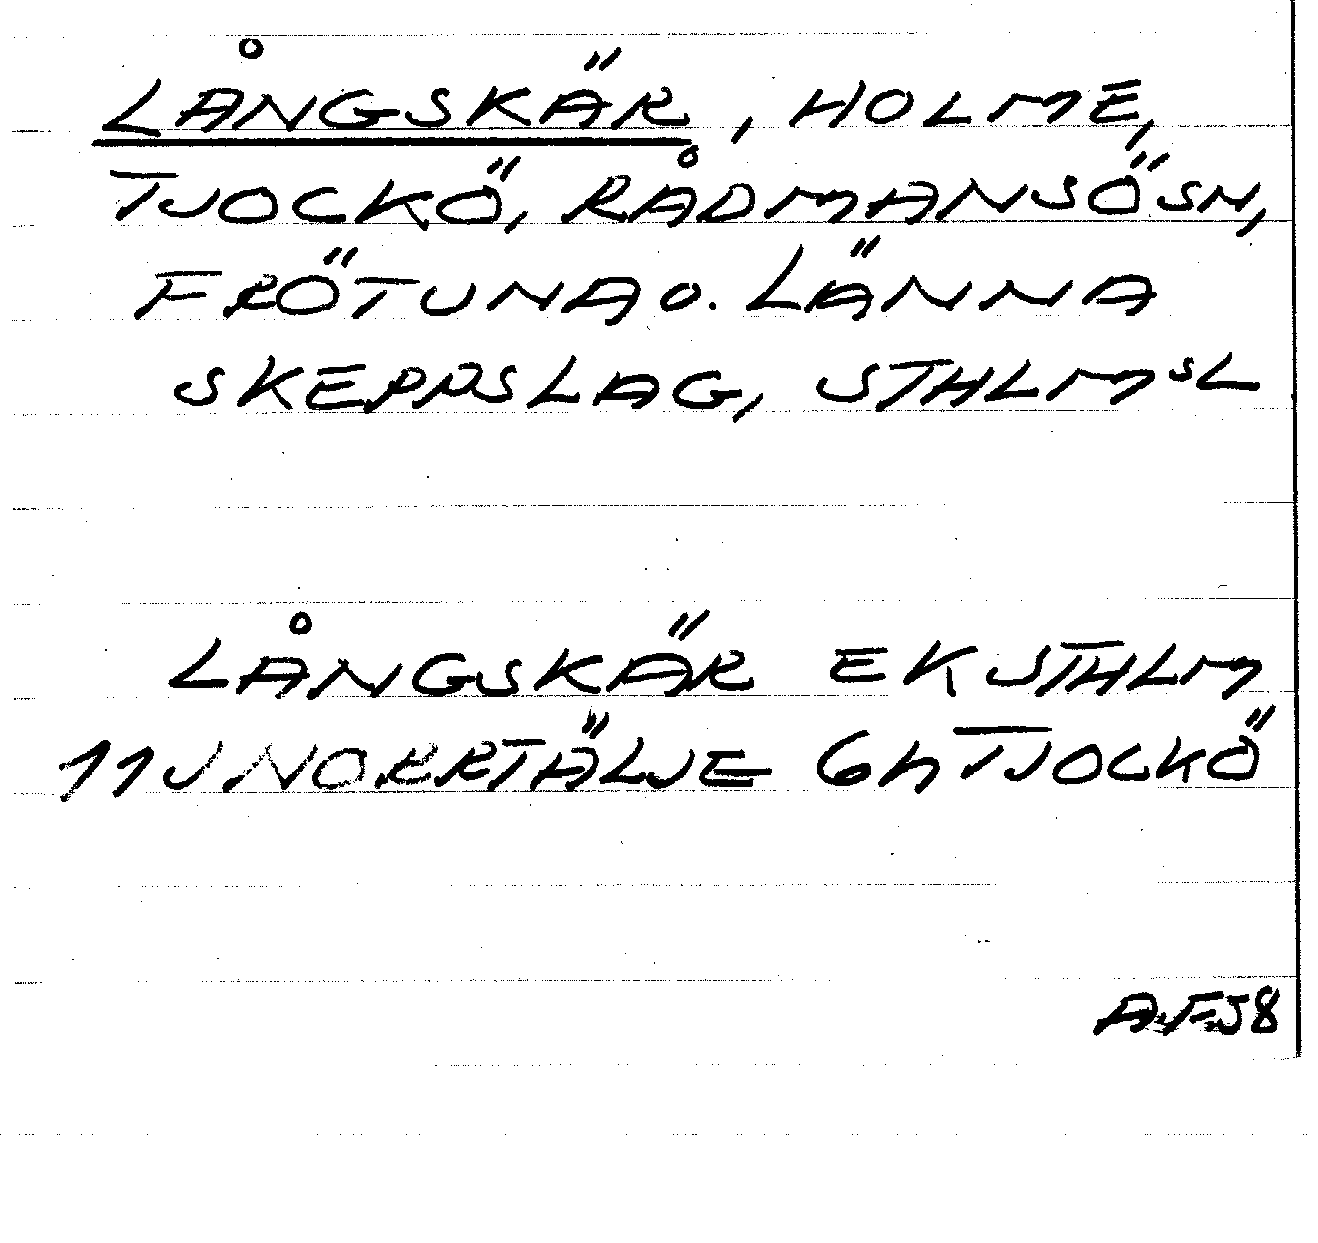 LÅNGSKÄR, HOLME,
TJOCKÖ, RÅDMANSÖ SN,
FRÖTUNA O. LÄNNA
SKEPPSLAG, STHLMSL
LÅNGSKÄR EK STHLM
11J NORRTÄLJE 6h TJOCKÖ
A.F. 58